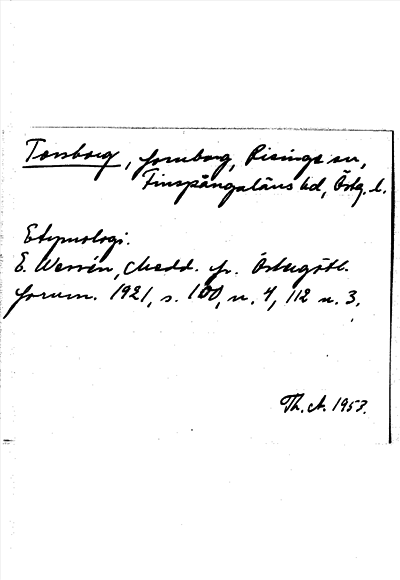 Torsborg, fornborg, Risinge sn,
Finspångaläns hd, Östg. l.
Etymologi.
E. Wessén, Medd. fr. Östergötl.
fornm. 1921, s. 100, n. 4, 112 n. 3.
Th. A. 1953.